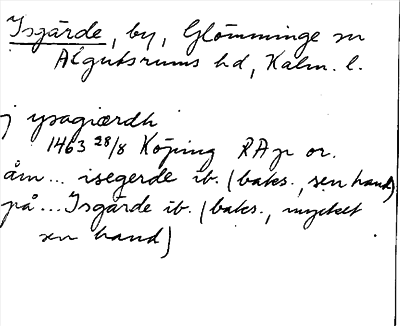 Isgärde, by, Glömminge sn
Algutsrums hd, Kalm. l.
j ysagiærdh
1463 28/8 Köping RAp or.
åm... isegerde ib. (baks., sen hand)
på... Isgärde ib. (baks., mycket
sen hand)